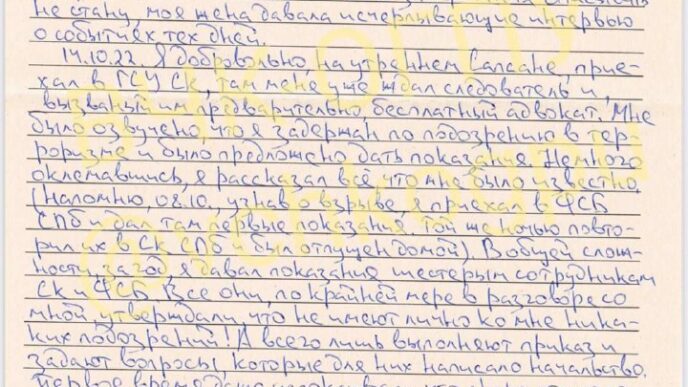 не стану, моя жена давала исчерпывающие интервью
о событиях тех дней.
14.10.22. Я добровольно на утреннем Сапсане, прие-
хал в ГСУ СК, там меня уже ждал следователь и,
вызваный им предварительно, бесплатный адвокат. Мне
было озвучено, что я задержан по подозрению в тер-
роризме и было предложено дать показания. Немного
оклемавшись, я рассказал всё, что мне было известно
(Напомню, 08.10., узнав о взрыве, я приехал в ФСБ
СПб и дал там первые показания. Той же ночью повто-
рил их в СК СПб и был отпущен домой). В общей слож-
ности, за год, я давал показания шестерым сотрудникам
СК и ФСБ. Все они, по крайней мере в разговоре со
мной утверждали, что не имеют лично ко мне ника-
ких подозрений! А всего лишь выполняют приказ и
задают вопросы, которые для них написало начальство.
Первое время